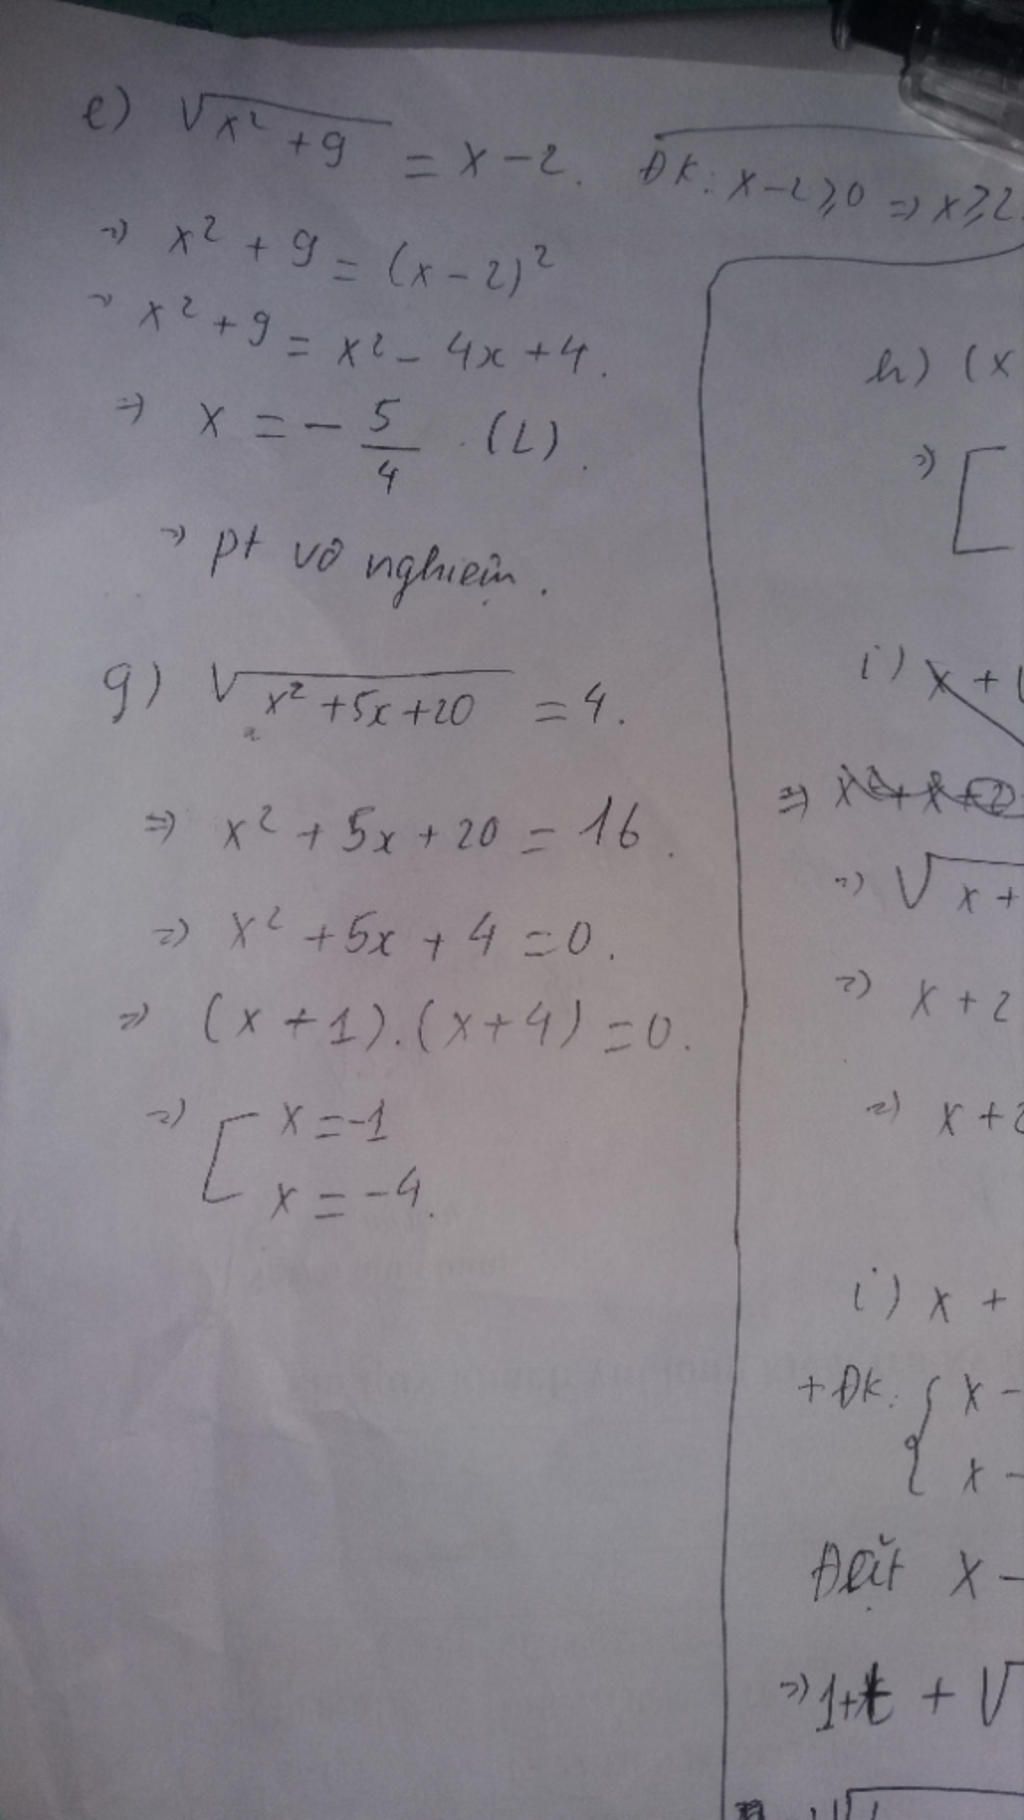 e) √(x² + 9) = x - 2. ĐK: x - 2 ≥ 0 => x ≥ 2.
=> x² + 9 = (x - 2)²
=> x² + 9 = x² - 4x + 4.
=> x = - 5/4 . (L).
=> pt vô nghiệm.
g) √(x² + 5x + 20) = 4.
=> x² + 5x + 20 = 16.
=> x² + 5x + 4 = 0.
=> (x + 1).(x + 4) = 0.
=> [ x = -1
x = -4.
h) (x
=> [
i) x + √
=>
=> √x +
=> x + 2
=> x + 2
i) x +
+ ĐK: { x -
x -
Đặt x -
=> 1 + t + √